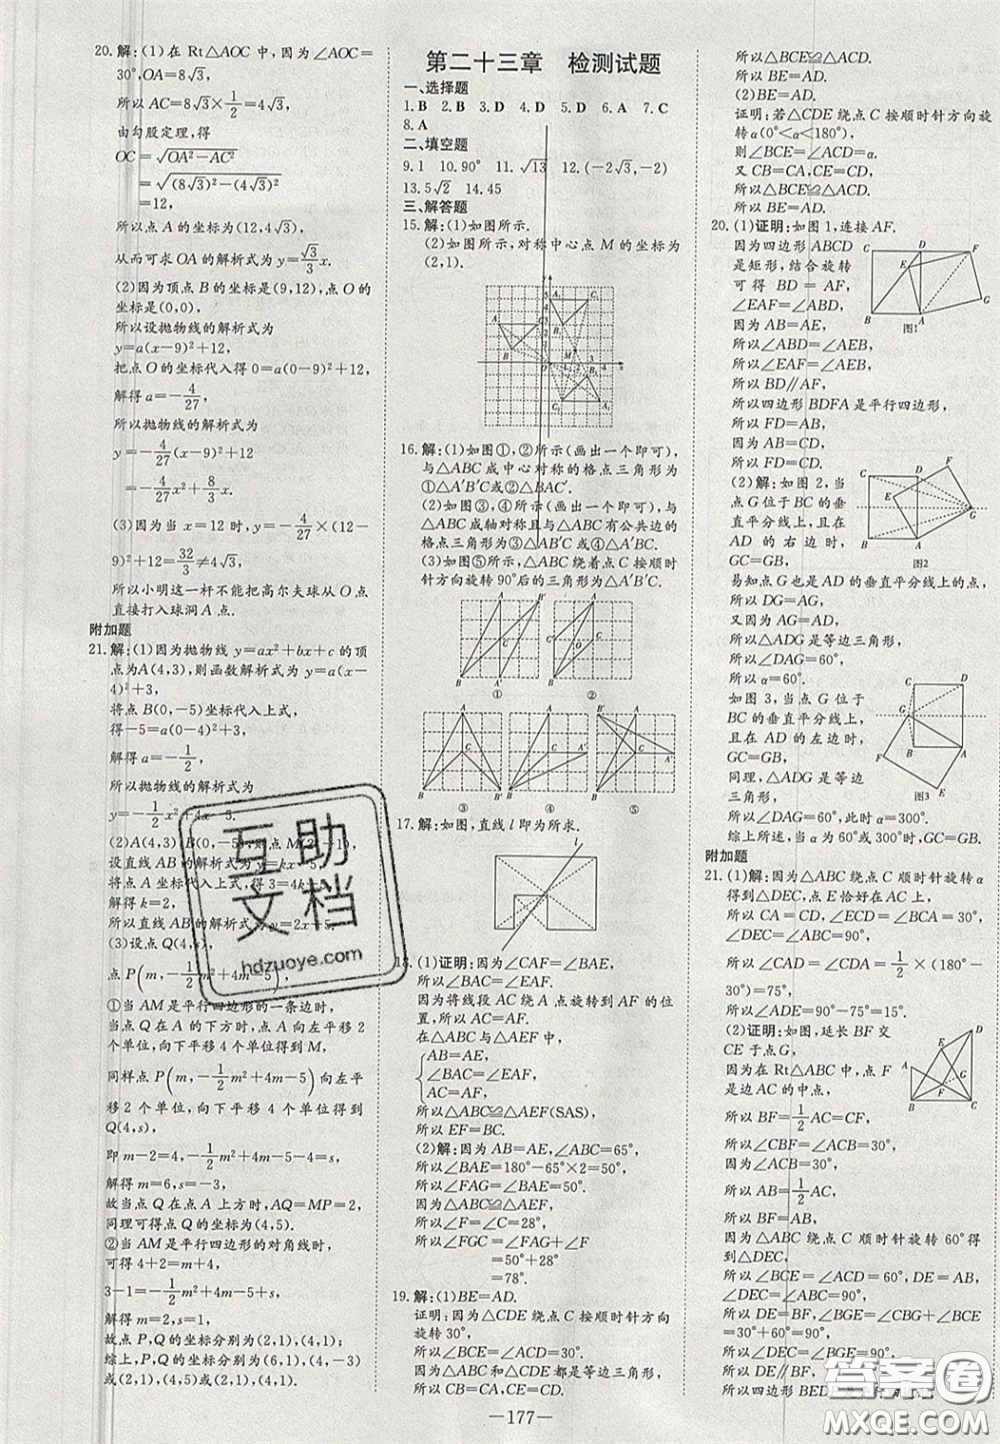 20.解:(1)在 Rt△AOC 中,因为∠AOC=
30°,OA=8√3,
所以 AC=8√3×1/2=4√3,
由勾股定理,得
OC=√(OA²-AC²)
=√((8√3)²-(4√3)²)
=12,
所以点 A 的坐标为(12,4√3),
从而可求 OA 的解析式为 y=√3/3 x.
(2)因为顶点 B 的坐标是(9,12),点 O 的
坐标是(0,0),
所以设抛物线的解析式为
y=a(x-9)²+12,
把点 O 的坐标代入得 0=a(0-9)²+12,
解得 a=-4/27,
所以抛物线的解析式为
y=-4/27(x-9)²+12
=-4/27x²+8/3x.
(3)因为当 x=12 时,y=-4/27×(12-
9)²+12=32/3≠4√3,
所以小明这一杆不能把高尔夫球从 O 点
直接打入球洞 A 点.
附加题
21.解:(1)因为抛物线 y=ax²+bx+c 的顶
点为A(4,3),则函数解析式为 y=a(x-
4)²+3,
将点 B(0,-5)坐标代入上式,
得-5=a(0-4)²+3,
解得 a=-1/2,
所以抛物线的解析式为
y=-1/2x²+4x-5.
(2)因为A(4,3)B(0,-5),
设直线 AB 的解析式为 y=kx-5,
将点 A 坐标代入上式,得 3=4k
解得 k=2,
所以直线 AB 的解析式为 y=2x-5.
(3)设点 Q(4,s),
点 P(m,-1/2m²+4m-5),
①当 AM 是平行四边形的一条边时,
当点 Q 在 A 的下方时,点 A 向左平移 2
个单位,向下平移 4 个单位得到 M,
同样点 P(m,-1/2m²+4m-5)向左平
移 2 个单位,向下平移 4 个单位得到
Q(4,s),
即 m-2=4,-1/2m²+4m-5-4=s,
解得 m=6,s=-3,
故当点 Q 在点 A 上方时,AQ=MP=2,
同理可得点 Q 的坐标为(4,5).
②当 AM 是平行四边形的对角线时,
可得 4+2=m+4,
3-1=-1/2m²+4m-5+s,
解得 m=2,s=1,
故点 P,Q 的坐标分别为(2,1),(4,1);
综上,P,Q 的坐标分别为(6,1),(4,-3)
或(2,1),(4,5)或(2,1),(4,1).
第二十三章 检测试题
一、选择题
1.B 2.B 3.D 4.D 5.D 6.A 7.C
8.A
二、填空题
9.1 10.90° 11.√13 12.(-2√3,-2)
13.5√2 14.45
三、解答题
15.解:(1)如图所示.
(2)如图所示,对称中心点 M 的坐标为
(2,1).
16.解:(1)如图①,②所示(画出一个即可),
与△ABC 成中心对称的格点三角形为
①△A'B'C或②△BAC'.
(2)如图③,④所示(画出一个即可),
与△ABC 成轴对称且与△ABC有公共边的
格点三角形为③△AB'C 或④△A'BC.
(3)如图⑤所示,△ABC 绕着点 C 按顺时
针方向旋转90°后的三角形为△A'B'C.
① ②
③ ④ ⑤
17.解:如图,直线 l 即为所求.
18.(1)证明:因为∠CAF=∠BAE,
所以∠BAC=∠EAF.
因为将线段 AC 绕 A 点旋转到 AF 的位
置,所以 AC=AF.
在△ABC 与△AEF 中,
AB=AE,
∠BAC=∠EAF,
AC=AF,
所以△ABC≌△AEF(SAS),
所以 EF=BC.
(2)解:因为 AB=AE,∠ABC=65°,
所以∠BAE=180°-65°×2=50°,
所以∠FAG=∠BAE=50°.
因为△ABC≌△AEF,
所以∠F=∠C=28°,
所以∠FGC=∠FAG+∠F
=50°+28°
=78°.
19.解:(1)BE=AD.
证明:因为△CDE 绕点 C 按顺时针方向
旋转 30°,
所以∠BCE=∠ACD=30°,
因为△ABC 和△CDE 都是等边三角形,
所以 CB=CA,CE=CD,
所以△BCE≌△ACD.
所以 BE=AD.
(2)BE=AD.
证明:若△CDE 绕点 C 按顺时针方向旋
转 α(0°<α<180°),
则∠BCE=∠ACD=α.
又 CB=CA,CE=CD,
所以△BCE≌△ACD.
所以 BE=AD.
20.(1)证明:如图 1,连接 AF.
因为四边形 ABCD
是矩形,结合旋转
可得 BD=AF,
∠EAF=∠ABD,
因为 AB=AE,
所以∠ABD=∠AEB,
所以∠EAF=∠AEB,
所以 BD∥AF,
所以四边形 BDFA 是平行四边形,
所以 FD=AB,
因为 AB=CD,
所以 FD=CD.
图1
(2)解:如图 2,当
点 G 位于 BC 的垂
直平分线上,且在
AD 的右边时,
GC=GB,
图2
易知点 G 也是 AD 的垂直平分线上的点,
所以 DG=AG,
又因为 AG=AD,
所以△ADG 是等边三角形,
所以∠DAG=60°,
所以 α=60°.
如图 3,当点 G 位于
BC 的垂直平分线上,
且在 AD 的左边时,
GC=GB,
同理,△ADG 是等边
三角形,
图3
所以∠DAG=60°,此时 α=300°.
综上所述,当 α 为 60°或 300°时,GC=GB.
附加题
21.(1)解:因为△ABC 绕点 C 顺时针旋转 α
得到△DEC,点 E 恰好在 AC 上,
所以 CA=CD,∠ECD=∠BCA=30°,
∠DEC=∠ABC=90°,
所以∠CAD=∠CDA=1/2×(180°-
30°)=75°,
所以∠ADE=90°-75°=15°.
(2)证明:如图,延长 BF 交
CE 于点 G,
因为在 Rt△ABC 中,点 F
是边 AC 的中点,
所以 BF=CF=1/2AC,
所以∠CBF=∠ACB=30°,
因为∠ACB=30°,
所以 AB=1/2AC,
所以 BF=AB,
因为△ABC 绕点 C 顺时针旋转 60°得
到△DEC,
所以∠BCE=∠ACD=60°,AB=DE,
∠DEC=∠ABC=90°,
所以 DE=BF,∠BGE=∠CBG+∠BCE
=30°+60°=90°,
所以∠BGE=∠DEC,
所以 DE∥BF,
所以四边形 BED
—177—
互助文档
hdzuoye.com
答案圈
MXQE.COM